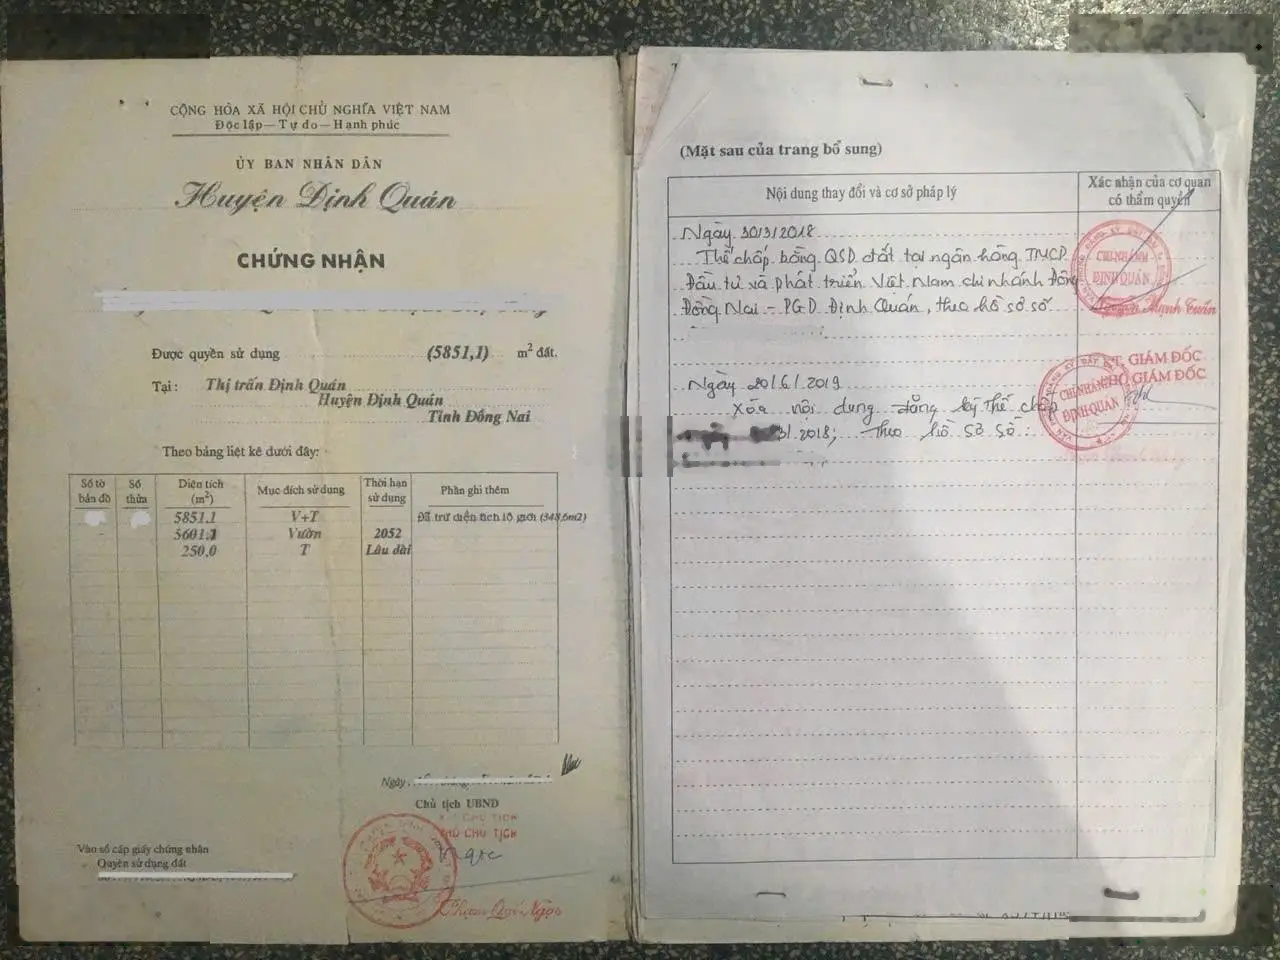 CỘNG HÒA XÃ HỘI CHỦ NGHĨA VIỆT NAM
Độc lập — Tự do — Hạnh phúc
ỦY BAN NHÂN DÂN
Huyện Định Quán
CHỨNG NHẬN
Được quyền sử dụng (5851,1) m² đất.
Tại: Thị trấn Định Quán
Huyện Định Quán
Tỉnh Đồng Nai
Theo bảng liệt kê dưới đây:
Số tờ bản đồ Số thửa Diện tích (m²) Mục đích sử dụng Thời hạn sử dụng Phần ghi thêm
5851,1 V+T Đã trừ diện tích lộ giới (348,6m2)
5601,1 Vườn 2052
250,0 T Lâu dài
Ngày
Chủ tịch UBND
KT CHỦ TỊCH
PHÓ CHỦ TỊCH
Vào sổ cấp giấy chứng nhận
Quyền sử dụng đất
Phạm Quí Ngọc
(Mặt sau của trang bổ sung)
Nội dung thay đổi và cơ sở pháp lý
Xác nhận của cơ quan có thẩm quyền
Ngày 30/3/2018
Thế chấp bằng QSD đất tại ngân hàng TMCP
Đầu tư và phát triển Việt Nam chi nhánh Đông
Đồng Nai - PGD Định Quán, theo hồ sơ số
CHI NHÁNH
ĐỊNH QUÁN
Mạnh Tuấn
Ngày 20/6/2019
Xóa nội dung đăng ký thế chấp
3/2018; Theo hồ sơ số:
KT. GIÁM ĐỐC
PHÓ GIÁM ĐỐC
CHI NHÁNH
ĐỊNH QUÁN